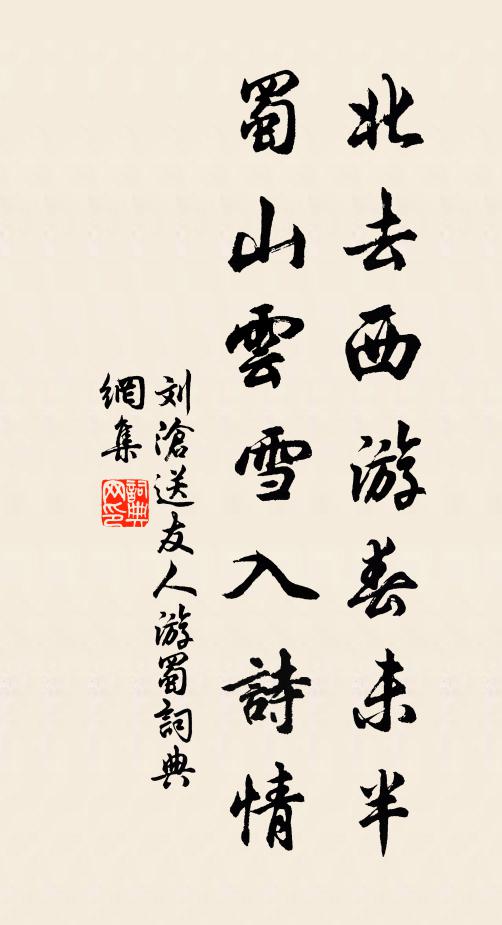 北去西游春未半
蜀山雲雪入詩情
刘滄送友人游蜀詞典
網集
詞典
网印